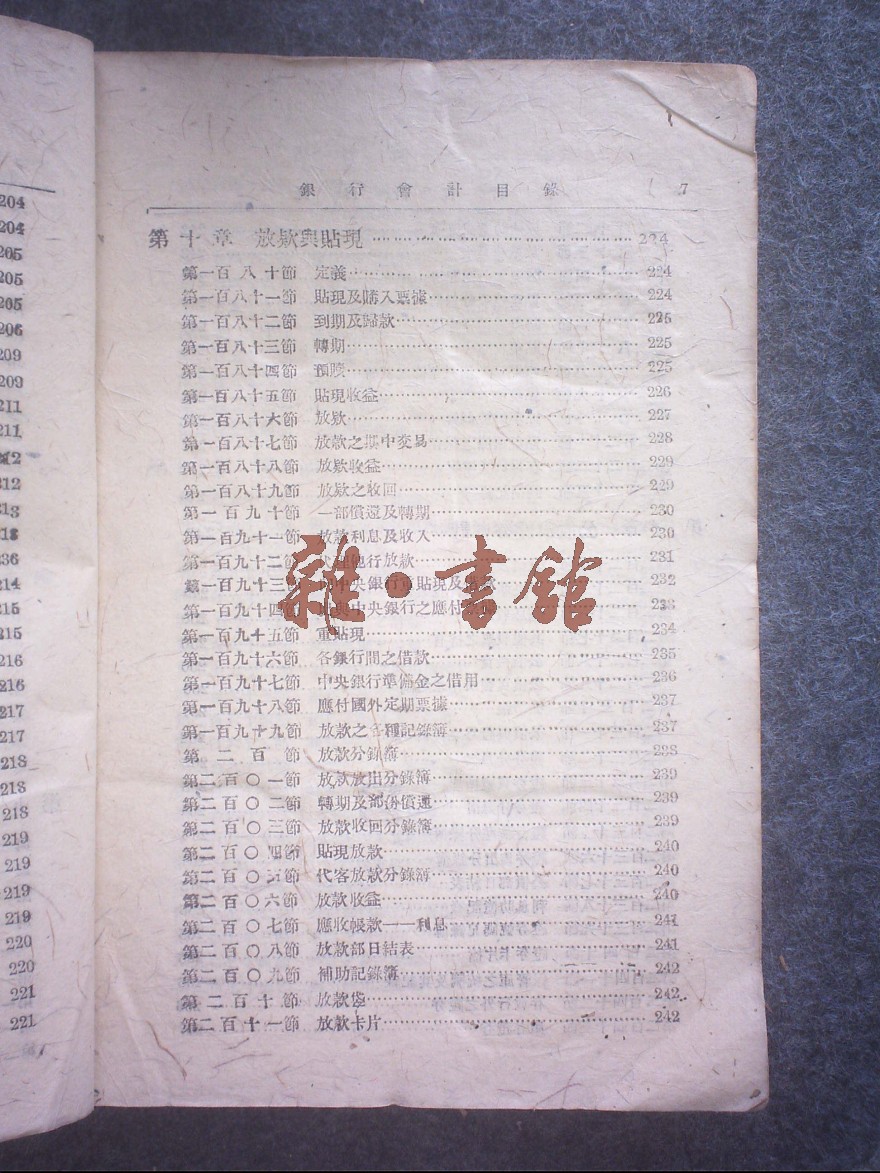 銀行會計目錄 7
第十章 放欵與貼現 224
第一百八十節 定義 224
第一百八十一節 貼現及購入票據 224
第一百八十二節 到期及歸款 225
第一百八十三節 轉期 225
第一百八十四節 225
第一百八十五節 貼現收益 226
第一百八十六節 放欵 227
第一百八十七節 放款之期中交易 228
第一百八十八節 放欵收益 229
第一百八十九節 放欵之收回 229
第一百九十節 一部償還及轉期 230
第一百九十一節 放款利息及收入 230
第一百九十二節 他行放款 231
第一百九十三節 中央銀行重貼現及 232
第一百九十四節 與中央銀行之應付 233
第一百九十五節 重貼現 234
第一百九十六節 各銀行間之借款 235
第一百九十七節 中央銀行準備金之借用 236
第一百九十八節 應付國外定期票據 237
第一百九十九節 放款之各種記錄簿 237
第二百節 放款分錄簿 238
第二百〇一節 放款放出分錄簿 239
第二百〇二節 轉期及部份償還 239
第二百〇三節 放款收回分錄簿 239
第二百〇四節 貼現放款 240
第二百〇五節 代客放款分錄簿 240
第二百〇六節 放款收益 240
第二百〇七節 應收帳款——利息 241
第二百〇八節 放款部日結表 241
第二百〇九節 補助記錄簿 242
第二百十節 放款袋 242
第二百十一節 放款卡片 242
雜·書館
204
204
205
205
205
206
209
209
211
211
212
212
213
213
236
214
215
215
216
216
217
217
218
218
218
219
219
219
219
220
220
221
221